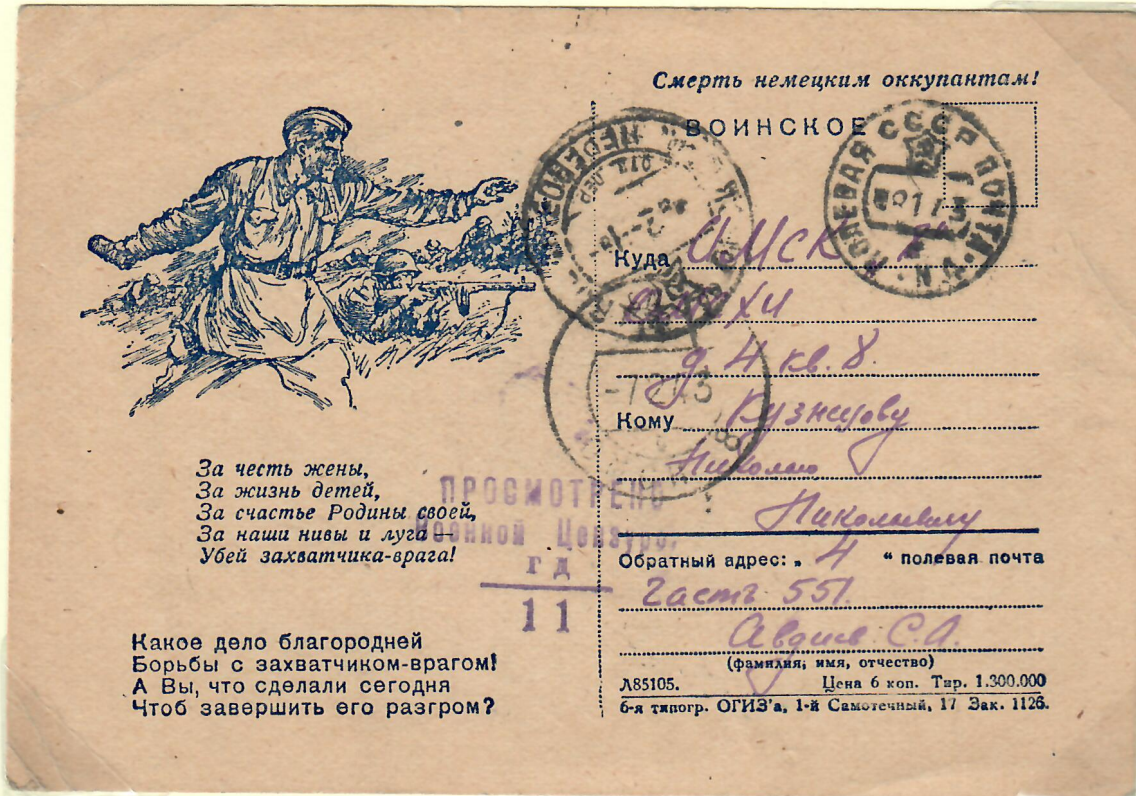 Смерть немецким оккупантам!
ВОИНСКОЕ
ПОЛЕВАЯ СССР ПОЧТА
Куда Омск
д. 4 кв. 8.
-7 2 43
Кому Кузнецову
Николаю
Николаевичу
Обратный адрес: „ 4 “ полевая почта
Часть 551.
Авдиев С.А.
(фамилия, имя, отчество)
Л85105. Цена 6 коп. Тир. 1.300.000
6-я типогр. ОГИЗ'а, 1-й Самотечный, 17 Зак. 1126.
За честь жены,
За жизнь детей,
За счастье Родины своей,
За наши нивы и луга —
Убей захватчика-врага!
ПРОСМОТРЕНО
Военной Цензурой
гд
11
Какое дело благородней
Борьбы с захватчиком-врагом!
А Вы, что сделали сегодня
Чтоб завершить его разгром?